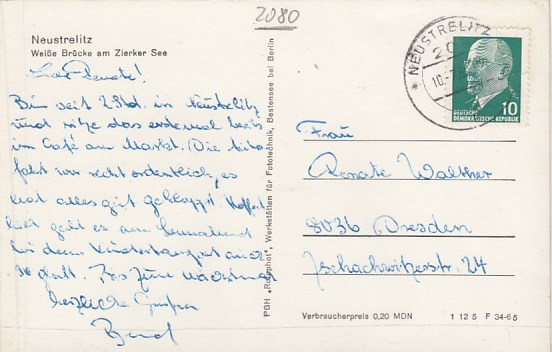 2080
Neustrelitz
Weiße Brücke am Zierker See
Liebe Renate!
Bin seit 2 Std. in Neustrelitz
und sitze das erstemal
im Café am Markt. Die
fahrt war recht ordentlich, es
hat alles gut geklappt. Hoffent-
lich geht es am Sonnabend
bei dem Kindertransport auch
so glatt. Bis zum nächstenmal
herzliche Grüße
Bernd
PGH „Rotophot", Werkstätten für Fototechnik, Bestensee bei Berlin
NEUSTRELITZ
10
DEUTSCHE
DEMOKRATISCHE REPUBLIK
Frau
Renate Walther
8036 Dresden
Tschachwitzerstr. 24
Verbraucherpreis 0,20 MDN
1 12 5 F 34-65